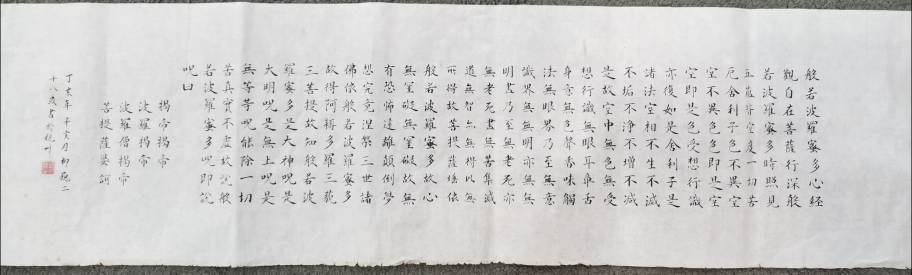 般若波羅蜜多心經
觀自在菩薩行深般
若波羅蜜多時照見
五蘊皆空度一切苦
厄舍利子色不異空
空不異色色即是空
空即是色受想行識
亦復如是舍利子是
諸法空相不生不滅
不垢不淨不增不減
是故空中無色無受
想行識無眼耳鼻舌
身意無色聲香味觸
法無眼界乃至無意
識界無無明亦無無
明盡乃至無老死亦
無老死盡無苦集滅
道無智亦無得以無
所得故菩提薩埵依
般若波羅蜜多故心
無罣礙無罣礙故無
有恐怖遠離顛倒夢
想究竟涅槃三世諸
佛依般若波羅蜜多
故得阿耨多羅三藐
三菩提故知般若波
羅蜜多是大神呪是
大明呪是無上呪是
無等等呪能除一切
苦真實不虛故說般
若波羅蜜多呪即說
呪曰
揭帝揭帝
波羅揭帝
波羅僧揭帝
菩提薩婆訶
丁亥年辛亥月
十八歲書於杭州